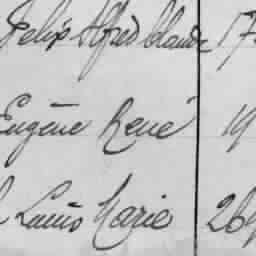 Felix Alfred Claude 17
Eugène René 19
Louis Marie 26